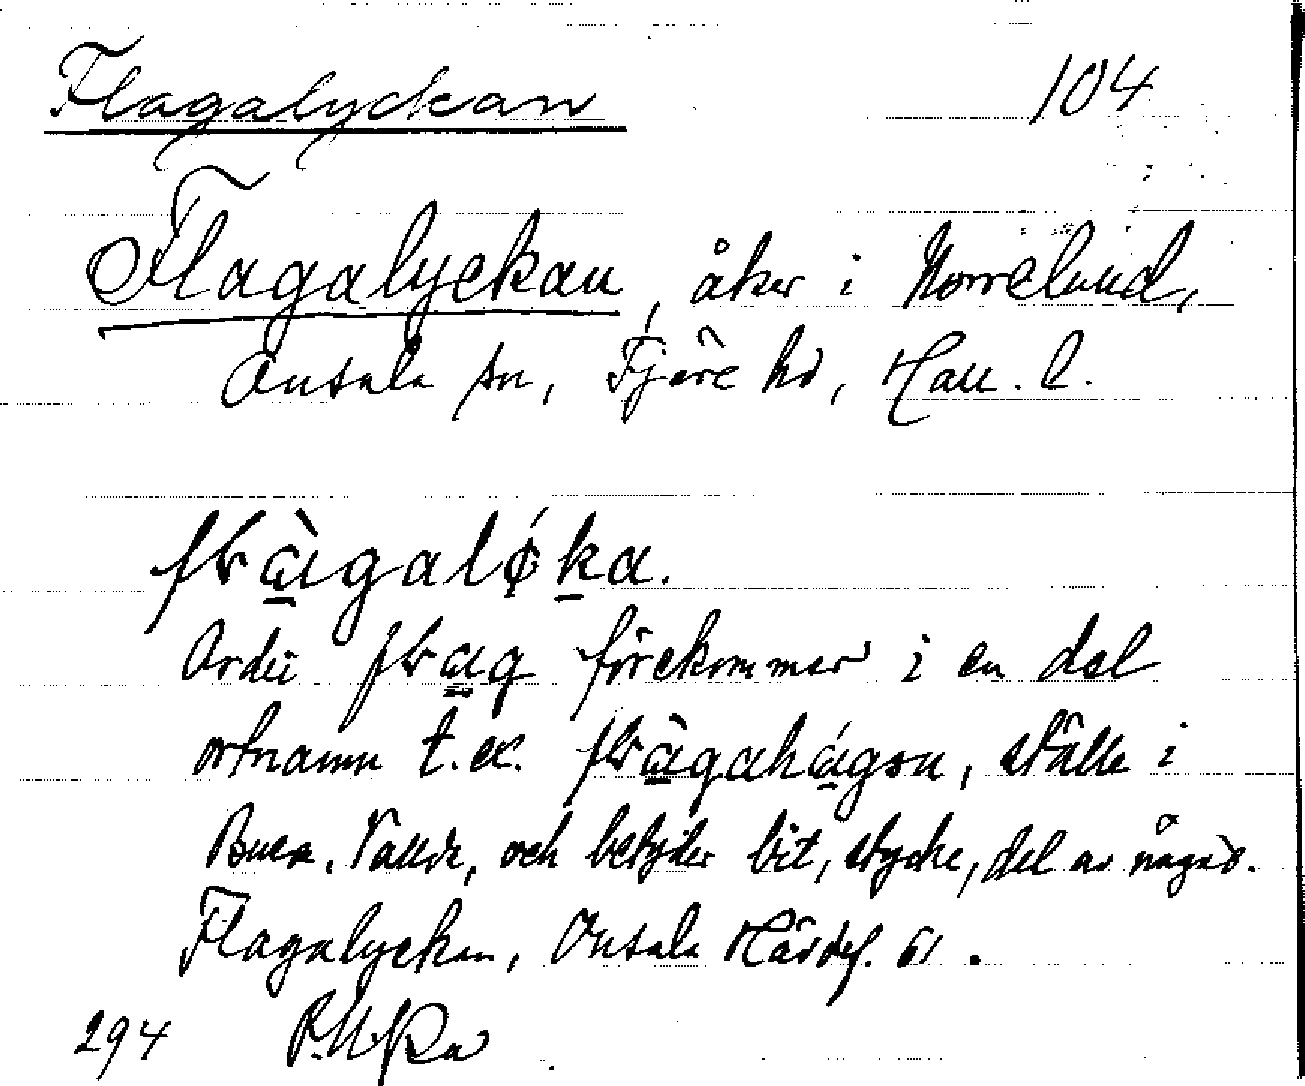 Flagalyckan 104
Flagalyckan, åker i Norrelund,
Onsala sn, Fjäre hd, Hall. l.
Ordet förekommer i en del
ortnamn t. ex. ställe i
Buera, Vallda, och betyder bit, stycke, del av något.
Flagalyckan, Onsala Härdef. 61.
294